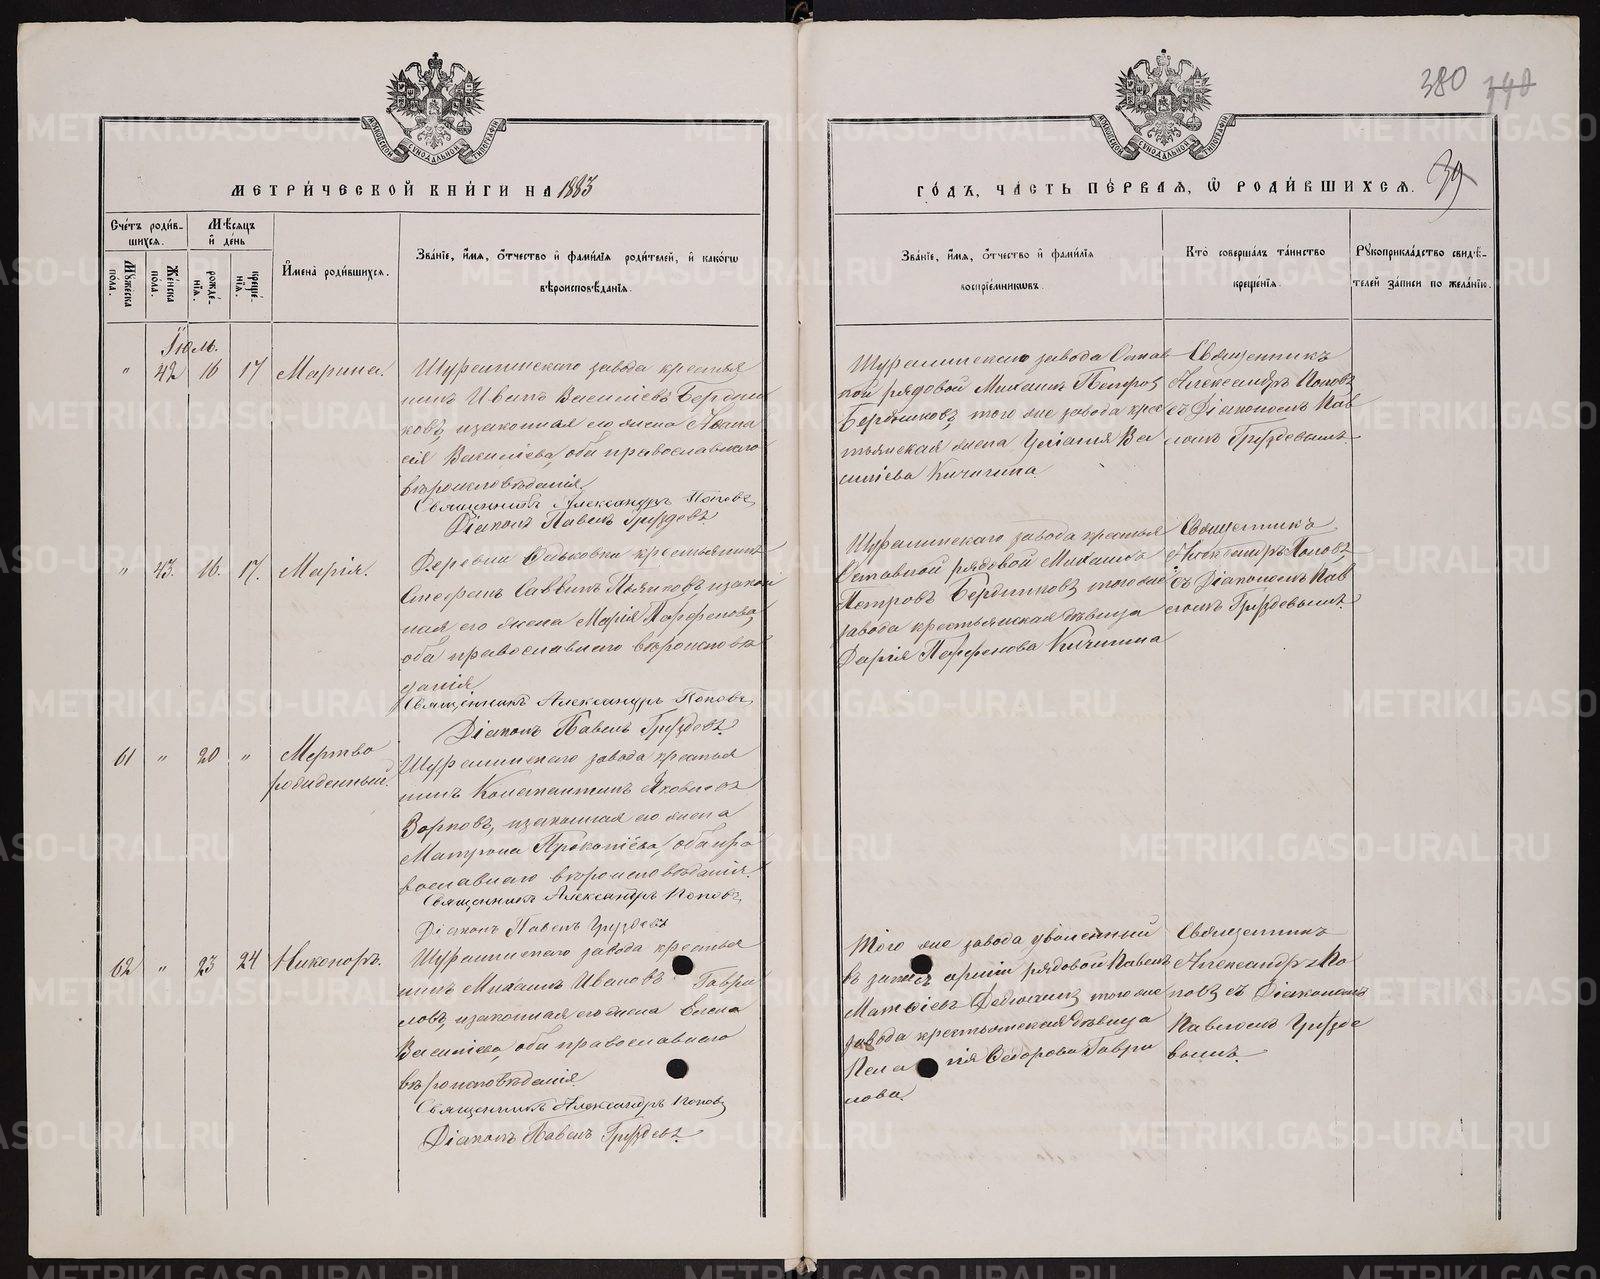 380 340
39
МЕТРИ́ЧЕСКОЙ КНИ́ГИ НА 1883
Сче́тъ роди́в-
шихся.
Мѣ́сяцъ
и҆ де́нь
Му́жеска
пола.
Же́нска
пола.
рожде́-
нїя.
креще́-
нїя.
И҆мена̀ роди́вшихся.
Зва́нїе, и҆́мя, ѻ҆́тчество и҆ фами́лїя роди́телей, и҆ како́гѡ
вѣроисповѣ́данїя.
Іюль.
" 42 16 17 Марина.
Шуралинскаго завода крестья
нинъ Иванъ Василіевъ Бердни
ковъ, изаконная его жена Афана
сія Василіева, оба православнаго
вѣроисповѣданія.
Священникъ Александръ Поповъ,
Діаконъ Павелъ Груздевъ.
" 43. 16. 17. Марія.
Деревни Обжовки крестьянинъ
Стефанъ Саввинъ Пьянковъ, изакон
ная его жена Марія Парфенова,
оба православнаго вѣроисповѣ
данія.
Священникъ Александръ Поповъ,
Діаконъ Павелъ Груздевъ.
61 " 20 " Мертво
рожденный.
Шуралинскаго завода крестья
нинъ Константинъ Яковлевъ
Ворповъ, изаконная его жена
Матрона Прокопіева, оба пра
вославнаго вѣроисповѣданія.
Священникъ Александръ Поповъ,
Діаконъ Павелъ Груздевъ
62 " 23 24 Никоноръ.
Шуралинскаго завода крестья
нинъ Михаилъ Ивановъ Гаври
ловъ, изаконная его жена Елена
Василіева, оба православнаго
вѣроисповѣданія.
Священникъ Александръ Поповъ
Діаконъ Павелъ Груздевъ.
ГО́ДЪ, ЧА́СТЬ ПЕ́РВАЯ, Ѡ҆ РОДИ́ВШИХСЯ.
Зва́нїе, и҆́мя, ѻ҆́тчество и҆ фами́лїя
воспрїе́мникѡвъ.
Кто̀ соверша́лъ та́инство
креще́нїя.
Рꙋкоприкла́дство свидѣ́-
телей за́писи по жела́нїю.
Шуралинскаго завода Отстав
ной рядовой Михаилъ Петровъ
Бердниковъ, того же завода крес
тьянская жена Уліанія Ва
силіева Кичигина
Священникъ
Александръ Поповъ
съ Діакономъ Пав
ломъ Груздевымъ.
Шуралинскаго завода крестья
Отставной рядовой Михаилъ
Петровъ Бердниковъ, того же
завода крестьянская дѣвица
Дарія Парфенова Кичигина
Священникъ
Александръ Поповъ,
съ Діакономъ Пав
ломъ Груздевымъ.
Того же завода уволенный
въ запасъ арміи рядовой Павелъ
Матѳіевъ Дедюхинъ, того же
завода крестьянская дѣвица
Пелагія Ѳедорова Гаври
лова.
Священникъ
Александръ По
повъ, съ Діакономъ
Павломъ Груздe
вымъ.
METRIKI.GASO-URAL.RU